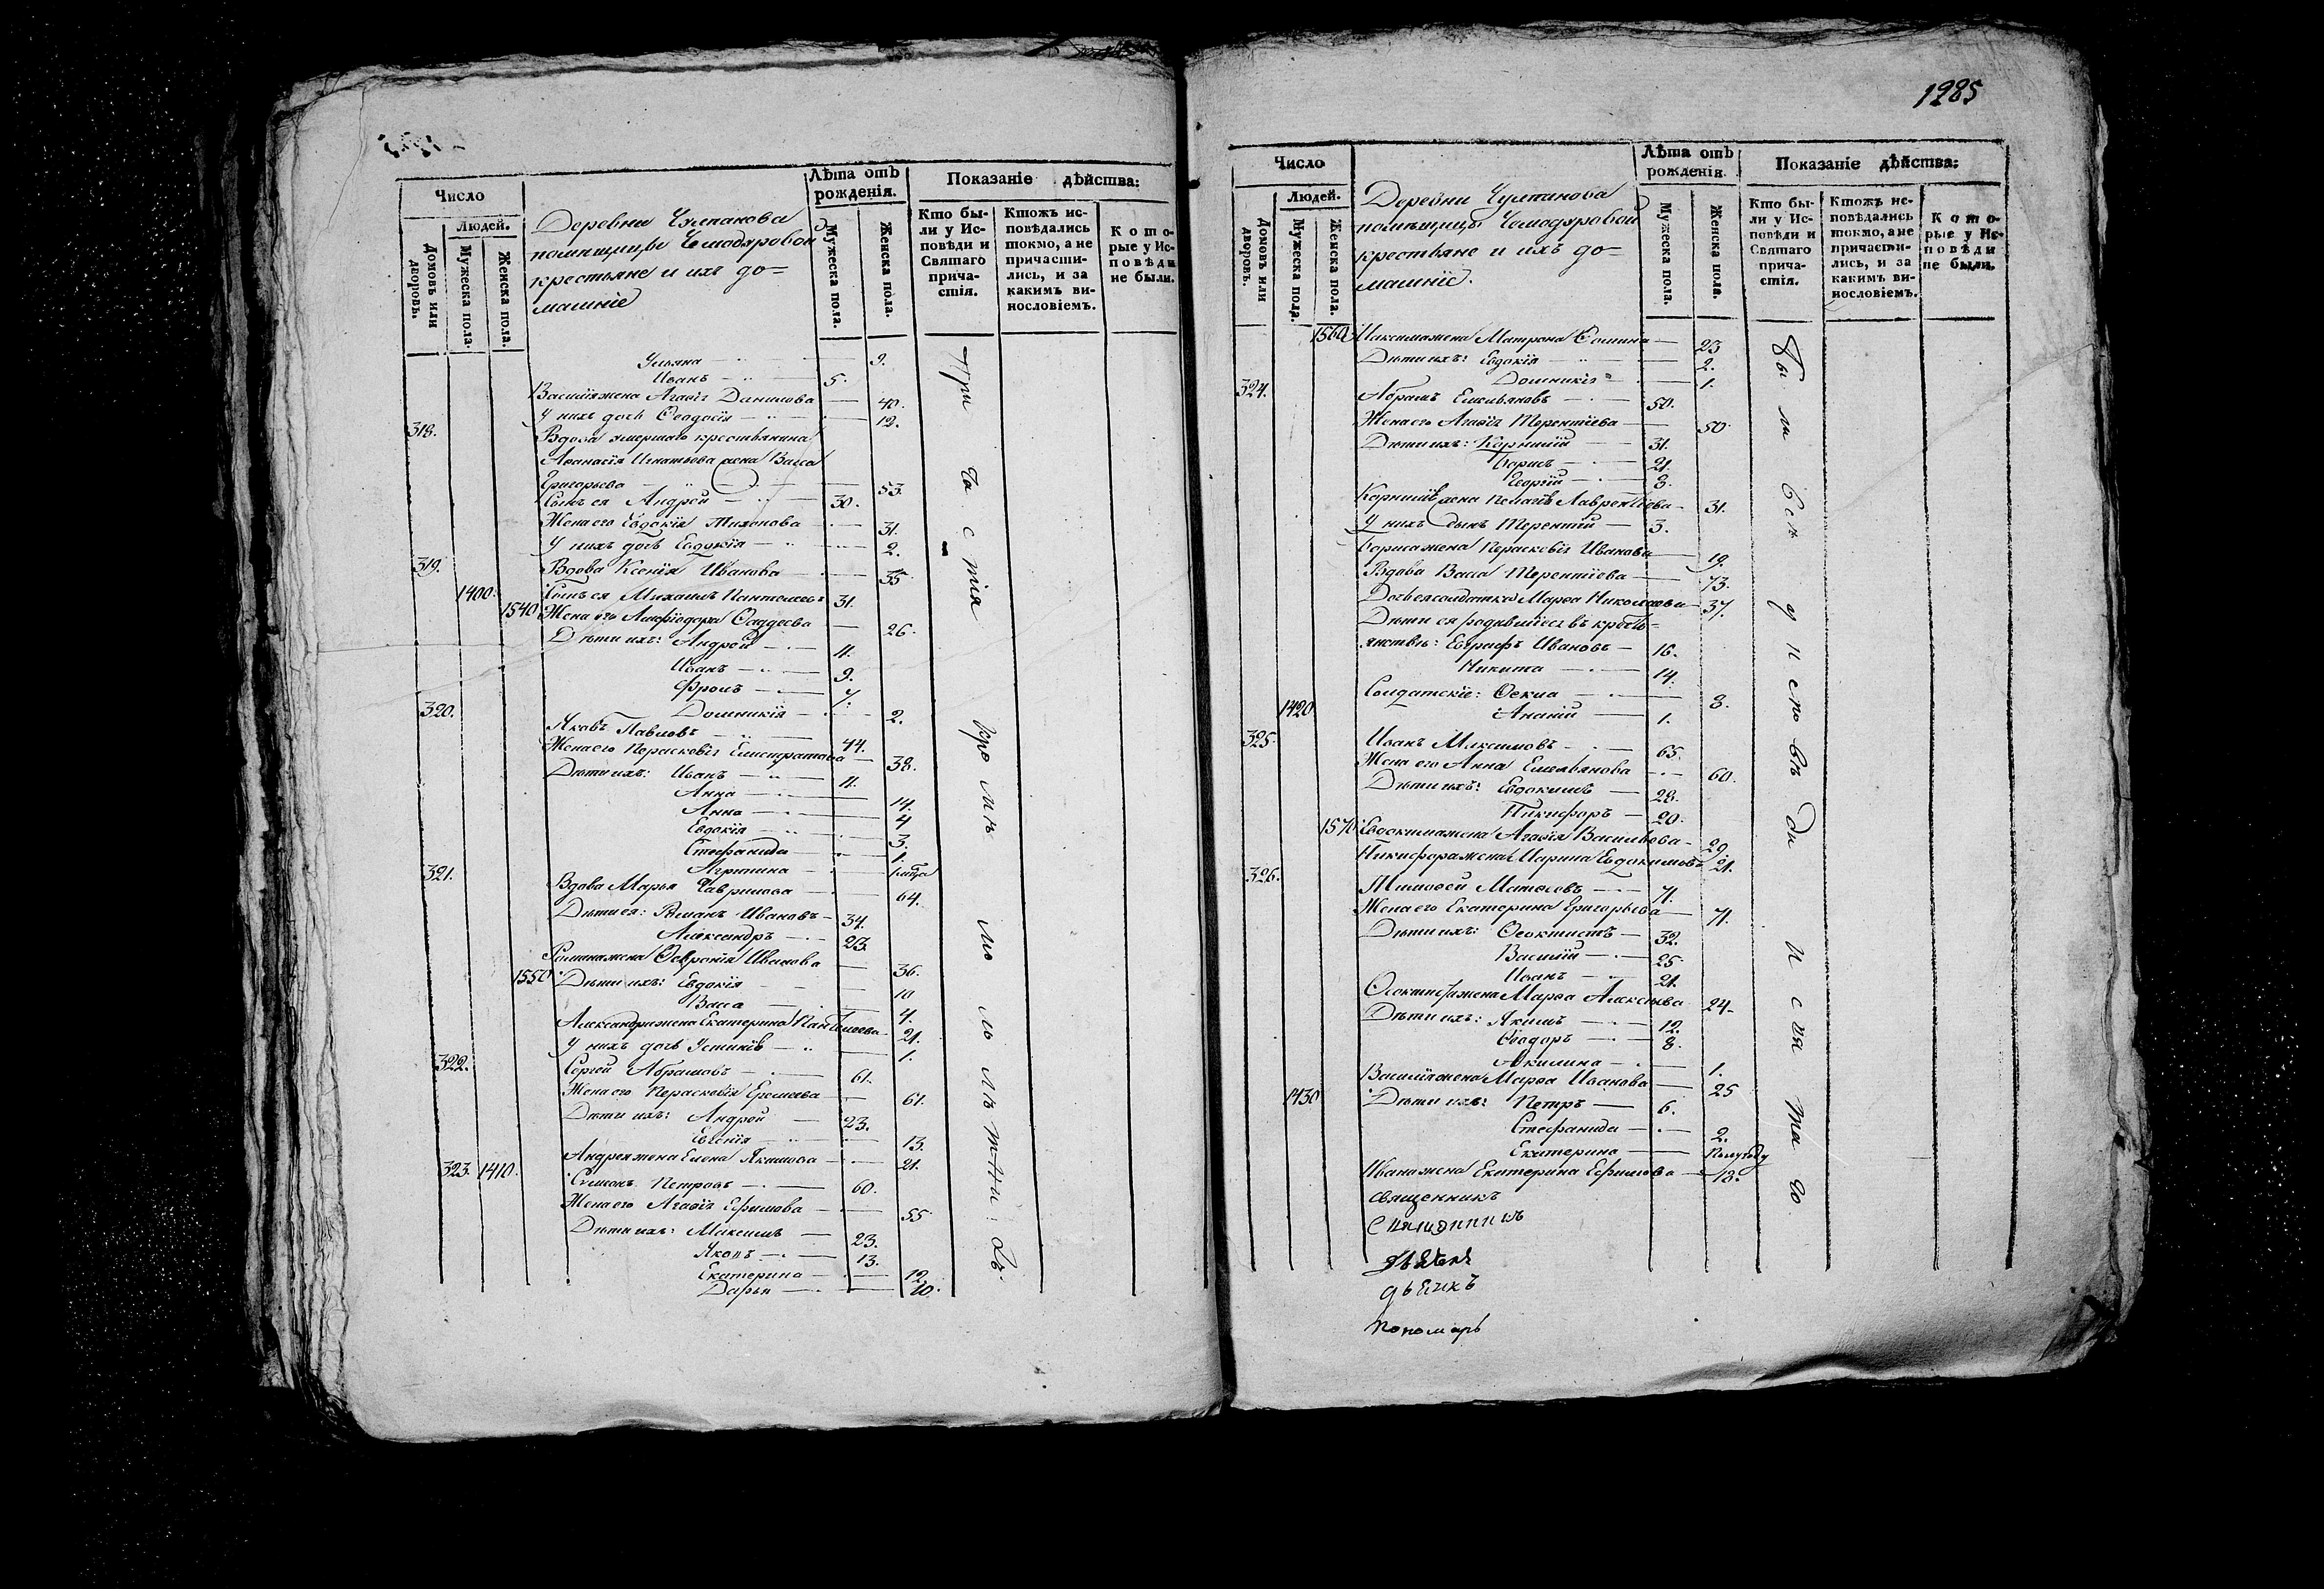 Число
Людей.
Домовъ или дворовъ.
Мужеска пола.
Женска пола.
Деревни Чулпанова
помѣщицы Чемодуровой
крестьяне и ихъ до=
машніе
Лѣта отъ рожденія.
Мужеска пола.
Женска пола.
Показаніе дѣйства:
Кто бы-
ли у Ис-
повѣди и
Святаго
прича-
стія.
Ктожъ ис-
повѣдались
токмо, а не
причасти-
лись, и за
какимъ ви-
нословіемъ.
Кото-
рые у Ис-
повѣди
не были.
Ульяна 9.
Иванъ 5.
Василія жена Агафія Данилова 40.
У нихъ дочь Ѳеодосія 12.
318. Вдова умершаго крестьянина
Аѳанасія Игнатьева жена Васса
Григорьева 53.
Сынъ ея Андрей 30.
Жена его Евдокія Тихонова 31.
У нихъ дочь Евдокія 2.
319. Вдова Ксенія Иванова 55
1400. Сынъ ея Михаилъ 31.
1540 Жена его Ѳаддеева 26.
Дѣти ихъ: Андрей 11.
Иванъ 9.
Фролъ 7.
Домникія 2.
320. Яковъ Павловъ 44.
Жена его Парасковія Елистратова 38.
Дѣти ихъ: Иванъ 11.
Анна 14.
Анна 4
Евдокія 3.
Стефанида 1.
Агрипина
321. Вдова Марья Гаврилова 64.
Дѣти ея: Романъ Ивановъ 34.
Александръ 23.
Романа жена Ѳевронія Иванова 36.
1550 Дѣти ихъ: Евдокія 10
Васса 4.
Александра жена Екатерина Пантелеева 21.
У нихъ дочь Устинія 1.
322. Сергей Абрамовъ 61.
Жена его Парасковія Еремеева 61.
Дѣти ихъ: Андрей 23.
Евгенія 13.
Андрея жена Елена Якимова 21.
323. 1410. Симонъ Петровъ 60.
Жена его Агафія Ефимова 55
Дѣти ихъ: Максимъ 23.
Яковъ 13.
Екатерина 12
Дарья 10.
При ча с тія кро мѣ мо ло лѣтни: хъ.
1285
Число
Людей.
Домовъ или дворовъ.
Мужеска пола.
Женска пола.
Деревни Чулпанова
помѣщицы Чемодуровой
крестьяне и ихъ до=
машніе.
Лѣта отъ рожденія
Мужеска пола.
Женска пола.
Показаніе дѣйства:
Кто бы-
ли у Ис-
повѣди и
Святаго
прича-
стія.
Ктожъ ис-
повѣдались
токмо, а не
причасти-
лись, и за
какимъ ви-
нословіемъ.
Кото-
рые у Ис-
повѣди
не были.
1560 Максима жена Матрона Ѳомина 23
Дѣти ихъ: Евдокія 2.
Домникія 1.
324. Абрамъ Емельяновъ 50.
Жена его Агафія Терентіева 50
Дѣти ихъ: Корнилій 31.
Борисъ 21.
Георгій 8.
Корнилія жена Пелагія Лаврентіева 31.
У нихъ сынъ Терентій 3.
Бориса жена Парасковія Иванова 19.
Вдова Васса Терентіева 73.
Дочь ея солдатка Марѳа Николаева 37.
Дѣти ея родившіеся въ кресть=
янствѣ: Евграфъ Ивановъ 16.
Никита 14.
Солдатскіе: Ѳекла 8.
1420 Ананій 1.
325. Иванъ Максимовъ 65.
Жена его Анна Емельянова 60.
Дѣти ихъ: Евдокимъ 28.
Никифоръ 20.
1570 Евдокима жена Агафія Васильева 29
Никифора жена Марина Евдокимова 21.
326. Тимоѳей Матвеевъ 71.
Жена его Екатерина Григорьева 71.
Дѣти ихъ: Ѳеоктистъ 32.
Василій 25.
Иванъ 21.
Ѳеоктиста жена Марѳа Алексѣева 24.
Дѣти ихъ: Якимъ 12.
Ѳеодоръ 8.
Акилина 1.
Василія жена Марѳа Иванова 25
1430 Дѣти ихъ: Петръ 6.
Стефанида 2.
Екатерина Полугоду
Ивана жена Екатерина Ефимова 18.
Бы ли всѣ у Испо вѣ ди и с вя та го
священникъ
Священникъ
дьячекъ
пономарь